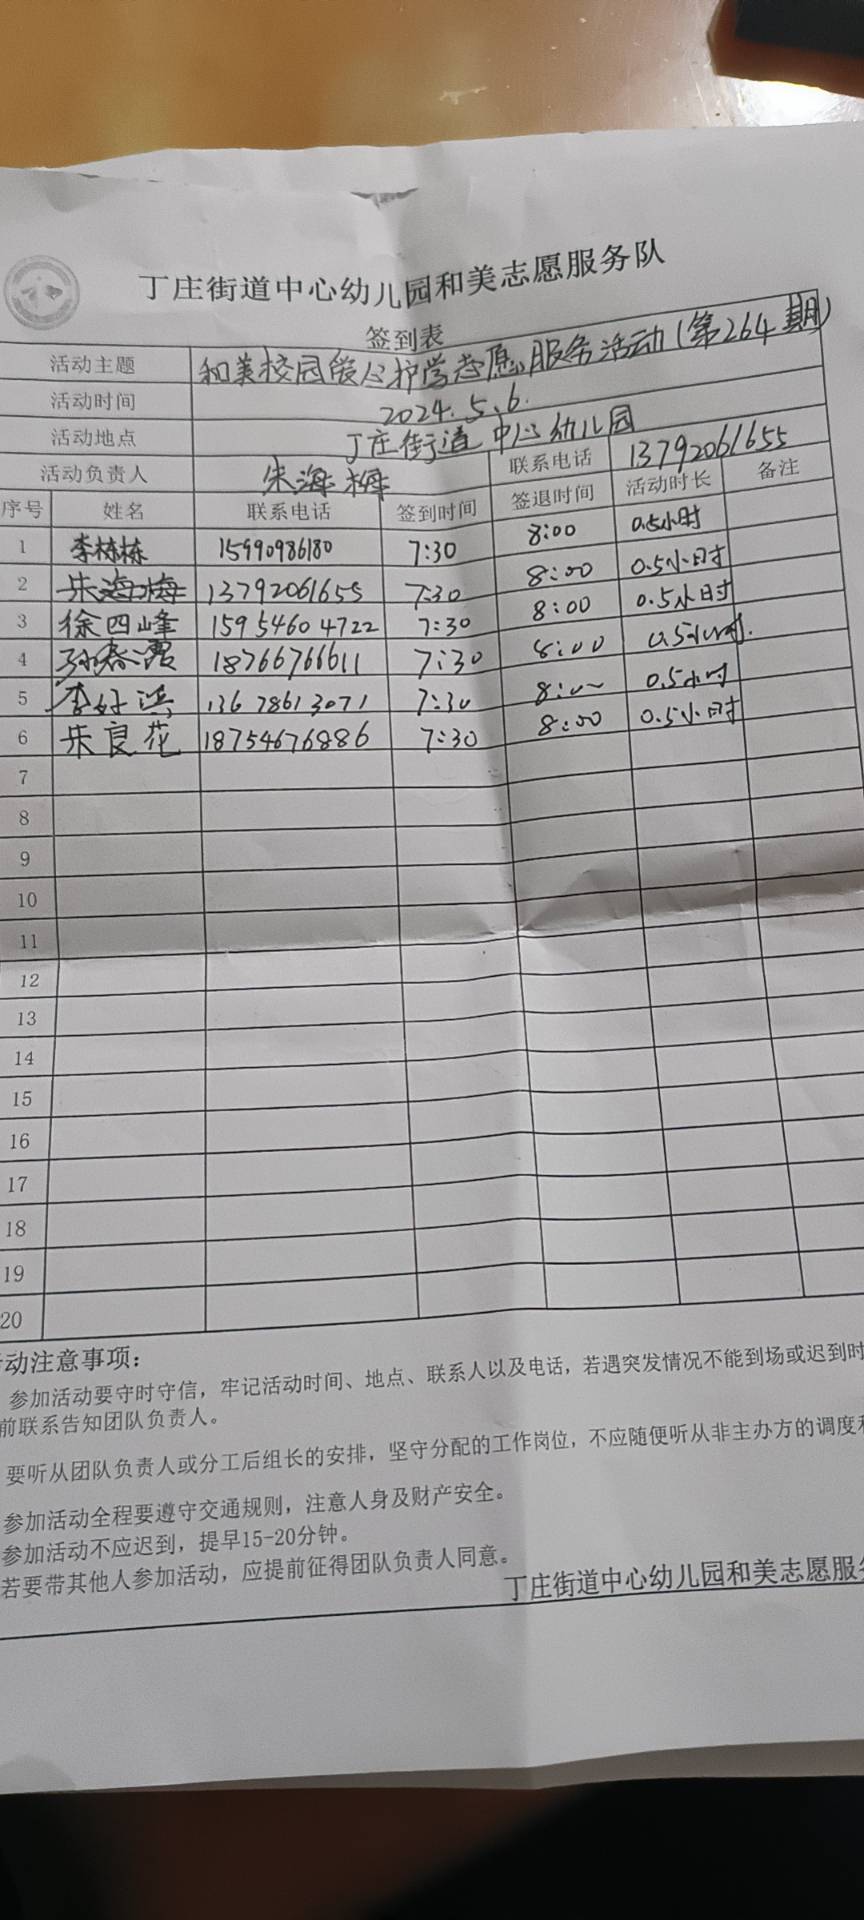 丁庄街道中心幼儿园和美志愿服务队
签到表
活动主题 和美校园爱心护学志愿服务活动(第264期)
活动时间 2024.5.6.
活动地点 丁庄街道中心幼儿园
活动负责人 朱海梅 联系电话 13792061655
序号 姓名 联系电话 签到时间 签退时间 活动时长 备注
1 李栋栋 15990986180 7:30 8:00 0.5小时
2 朱海梅 13792061655 7:30 8:00 0.5小时
3 徐四峰 15954604722 7:30 8:00 0.5小时
4 孙春霞 18766766611 7:30 8:00 0.5小时.
5 李好 13678613071 7:30 8:00 0.5小时
6 朱良花 18754676886 7:30 8:00 0.5小时
7
8
9
10
11
12
13
14
15
16
17
18
19
20
动注意事项：
参加活动要守时守信，牢记活动时间、地点、联系人以及电话，若遇突发情况不能到场或迟到时
前联系告知团队负责人。
要听从团队负责人或分工后组长的安排，坚守分配的工作岗位，不应随便听从非主办方的调度
参加活动全程要遵守交通规则，注意人身及财产安全。
参加活动不应迟到，提早15-20分钟。
若要带其他人参加活动，应提前征得团队负责人同意。
丁庄街道中心幼儿园和美志愿服